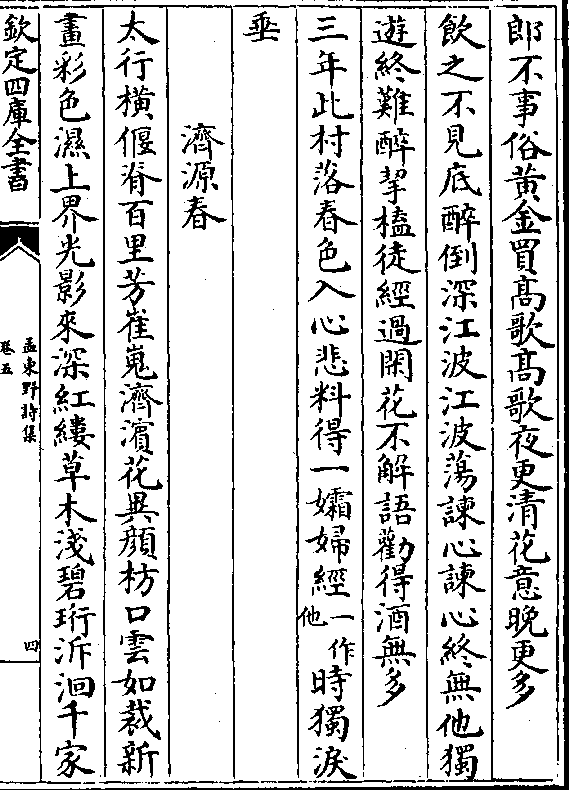 郎不事俗黃金買髙歌髙歌夜更清花意晚更多
飲之不見底醉倒深江波江波蕩諫心諫心終無他獨
遊終難醉挈榼徒經過閑花不解語勸得酒無多
三年此村落春色入心悲料得一孀婦經一作他時獨淚
垂
濟源春
太行橫偃脊百里芳崔嵬濟濱花異顔枋口雲如裁新
畫彩色濕上界光影來深紅縷草木淺碧珩泝洄千家
欽定四庫全書
孟東野詩集
卷五
四